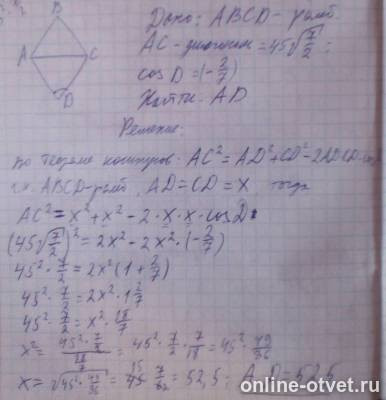 B
A
C
D
Дано: ABCD - ромб.
AC - диагональ = 45√7/2 ;
cos D = (-2/7)
Найти: AD
Решение:
по теореме косинусов: AC² = AD² + CD² - 2AD·CD·cos
т.к. ABCD - ромб, AD = CD = x, тогда
AC² = x² + x² - 2 · x · x · cos D
(45√7/2)² = 2x² - 2x² · (-2/7)
45² · 7/2 = 2x² (1 + 2/7)
45² · 7/2 = 2x² · 1 2/7
45² · 7/2 = x² · 18/7
x² = 45² · 7/2 / 18/7 = 45² · 7/2 · 7/18 = 45² · 49/36
x = √45² · 49/36 = 45 · 7/6 = 52,5 ; AD = 52,5
online-otvet.ru